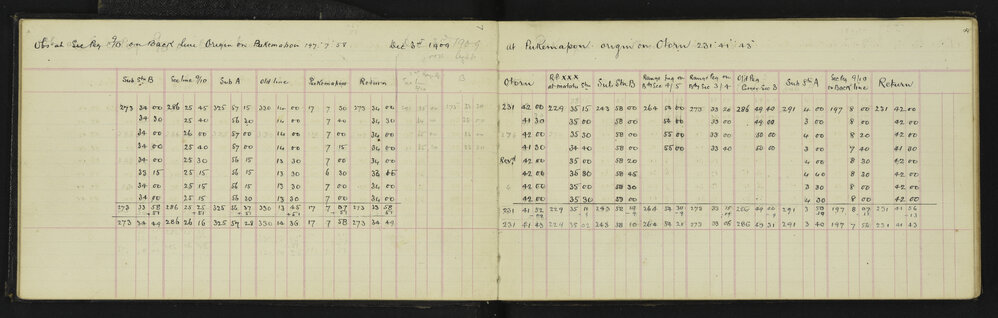 Obs at Sec Peg 9/10 on Back line Origin on Pukemapou 197° 7' 58" Dec 3rd 1909
Sub Stn B Sec line 9/10 Sub A Old line Pukemapou Return
273 34 00 286 25 45 325 57 15 330 14 00 17 7 30 273 34 00
34 30 25 40 56 30 14 00 7 40 34 00
34 00 26 00 57 00 14 00 7 00 34 00
34 00 25 40 57 00 14 00 7 15 34 00
34 00 25 30 56 15 13 30 7 00 34 00
33 15 25 15 56 15 13 30 6 30
34 00 25 15 56 15 13 30 7 00 34 00
34 00 25 15 56 30 13 30 7 00 34 00
273 33 58 286 25 25 325 56 37 330 13 45 17 7 07 273 33 58
+51 +51 +51 +51 +51 +51
273 34 49 286 26 16 325 57 28 330 14 36 17 7 58 273 34 49
at Pukemapou origin on Otorn 231° 41' 43"
Otorn Sub Stn B Old Peg Sub Stn A Sec Peg 9/10 on Back line Return
231 42 00 229 35 15 243 58 00 264 54 00 273 33 20 286 49 40 291 4 00 197 8 00 231 42 00
41 30 35 00 58 00 54 00 33 00 49 40 3 00 8 00 42 00
42 00 35 30 58 00 55 00 33 00 50 00 4 00 8 20 42 00
41 30 34 40 58 00 55 00 33 40 50 00 3 00 7 40 41 30
Revd 42 00 35 00 58 20 4 00 8 30 42 00
42 00 58 45 4 40 8 30 42 00
42 00 35 00 58 30 3 30 8 00 42 00
42 00 35 30 58 00 4 30 8 00 42 00
231 41 52 229 35 11 243 58 19 264 54 30 273 33 15 286 49 50 291 3 197 8 07 231 41 56
231 41 43 229 35 02 243 58 10 264 54 21 273 33 06 286 49 31 291 3 40 197 7 56 231 41 43